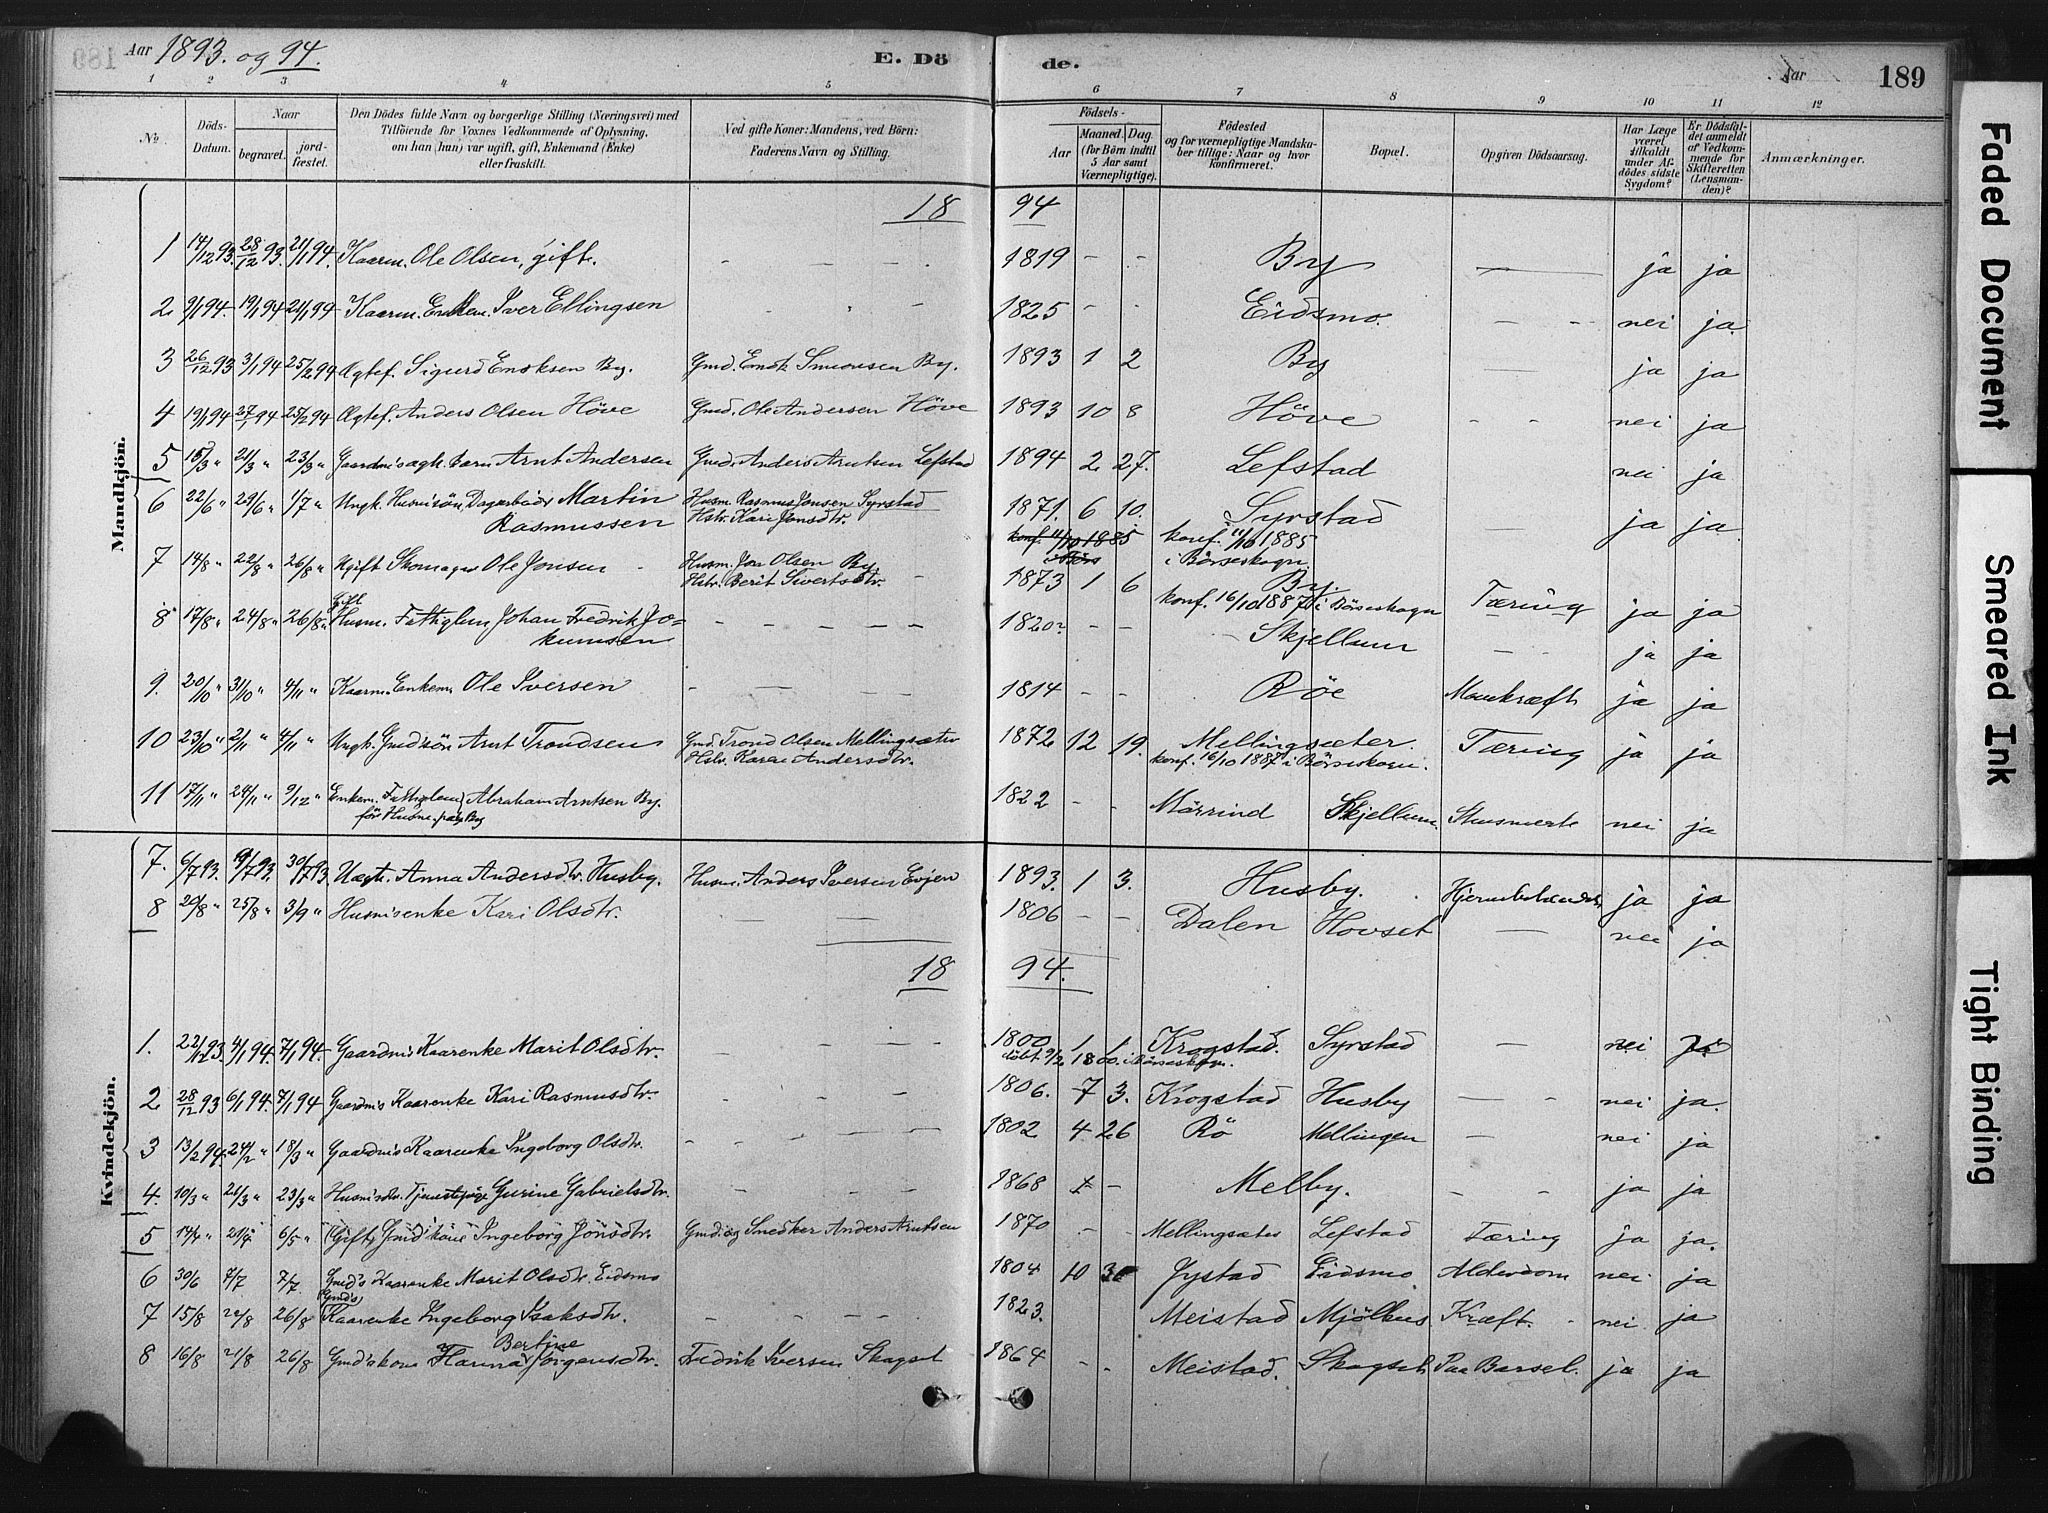 Aar 1893. og 94.
E. Dö de.
Aar
189
1 2 3 4 5 6 7 8 9 10 11 12
No.
Döds-Datum.
Naar
begravet.
jord-fæstet.
Den Dödes fulde Navn og borgerlige Stilling (Næringsvei) med
Tilföiende for Voxnes Vedkommende af Oplysning,
om han (hun) var ugift, gift, Enkemand (Enke)
eller fraskilt.
Ved gifte Koner: Mandens, ved Börn:
Faderens Navn og Stilling.
Födsels-
Aar
Maaned. Dag.
(for Börn indtil
5 Aar samt
Værnepligtige).
Födested
og for værnepligtige Mandska-
ber tillige: Naar og hvor
konfirmeret.
Bopæl.
Opgiven Dödsaarsag.
Har Læge
været
tilkaldt
under Af-
dödes sidste
Sygdom?
Er Dödsfal-
det anmeldt
af Vedkom-
mende for
Skifteretten
(Lensman-
den)?
Anmærkninger.
Mandkjön.
18 94
1 14/12 93. 28/12 93. 21/1 94. Kaarm. Ole Olsen, gift. 1819 - - By ja ja
2 9/1 94. 19/1 94 21/1 94 Kaarm. Enkem. Iver Ellingsen 1825 - - Eidsmo. nei ja
3 26/12 93 3/1 94 25/2 94 Ægtef. Sigurd Enoksen By. Gmd. Enok Simonsen By. 1893 1 2 By ja ja
4 19/1 94 27/1 94 25/2 94 Ægtef. Anders Olsen Höve Gmd. Ole Andersen Höve 1893 10 8 Höve nei ja
5 15/3 " 21/3 " 23/3 " Gaardm's ægte Barn Arnt Andersen Gmd. Anders Arntsen Lefstad 1894 2 27. Lefstad nei ja
6 22/6 " 29/6 " 1/7 " Ungk. Husm'sön, Dagarbeider Martin Husm. Rasmus Jonsen Syrstad 1871. 6 10. Syrstad ja ja
Rasmussen Hstr. Kari Jonsdtr. konf. 11/10 1885 konf. 11/10 1885
i Börseskogn.
7 14/8 " 22/8 " 26/8 " Ugift Skomager Ole Jonsen Husm. Jon Olsen By 1873 1 6 By. Tæring ja ja
Hstr. Berit Sivertsdtr. konf. 16/10 1887 i Börseskogn
8 17/8 " 24/8 " 26/8 " gift Husm. Fattiglem Johan Fredrik Jo- 1820 - - Skjellum ja ja
kumsen
9. 20/10 " 31/10 " 4/11 " Kaarm. Enkem. Ole Iversen 1814 - - Röe Mavekræft ja ja
10 23/10 " 2/11 " 4/11 " Ungk. Gmd'sön Arnt Trondsen Gmd. Trond Olsen Mellingsæter 1872 12 19. Mellingsæter. Tæring ja ja
Hstr. Karen Andersdtr. konf. 16/10 1887 i Börseskogn.
11 17/11 " 24/11 " 9/12 " Enkem. Fattiglem Abraham Arntsen By. 1822 - - Mörrind Skjellum. nei ja
för Husm. paa By
7. 6/7 93. 9/7 93. 30/7 93. Uægte. Anna Andersdtr. Husby. Husm. Anders Iversen Evjen 1893. 1 3. Husby. Hjernebetændelse ja ja
8 20/8 " 25/8 " 3/9 " Husm'senke Kari Olsdtr. 1806 - - Dalen Hovset nei ja
18 94.
Kvindekjön.
1. 22/12 93. 4/1 94. 7/1 94. Gaardm's Kaarenke Marit Olsdtr. 1800 1 1 Krogstad. Syrstad nei ja
döbt 9/2 1800. i Börseskogn.
2 28/12 93 6/1 94. 7/1 94 Gaardm's Kaarenke Kari Rasmusdtr. 1806. 7 3. Krogstad Husby nei ja.
3 13/2 94. 24/2 " 18/3 " Gaardm's Kaarenke Ingeborg Olsdtr. 1802 4 26 Rö Mellingen nei ja
4. 10/3 " 21/3 " 23/3 " Husm'sdtr. Tjenestepige Gurine Gabrielsdtr. 1868 - Melby. ja ja
5 14/4 " 21/4 " 6/5 " (Gift) Gmd'kone Ingeborg Jonsdtr. Gmd. og Snedker Anders Arntsen 1870 - Mellingsæter Lefstad Tæring ja ja.
6 30/6 7/7 7/7. Gmd's Kaarenke Marit Olsdtr. Eidsmo 1804 10 30 Gystad Eidsmo Alderdom nei ja
7 15/8 22/8 26/8 Gmd's Kaarenke Ingeborg Isaksdtr. 1823. Meistad Mjölhus Kræft. nei ja
8 16/8 21/8 26/8 Gmd'skone Hanna Bertine Jörgensdtr. Fredrik Iversen Skagset 1864 - - Meistad. Skogset Paa Barsel. ja ja
Faded Document
Smeared Ink
Tight Binding